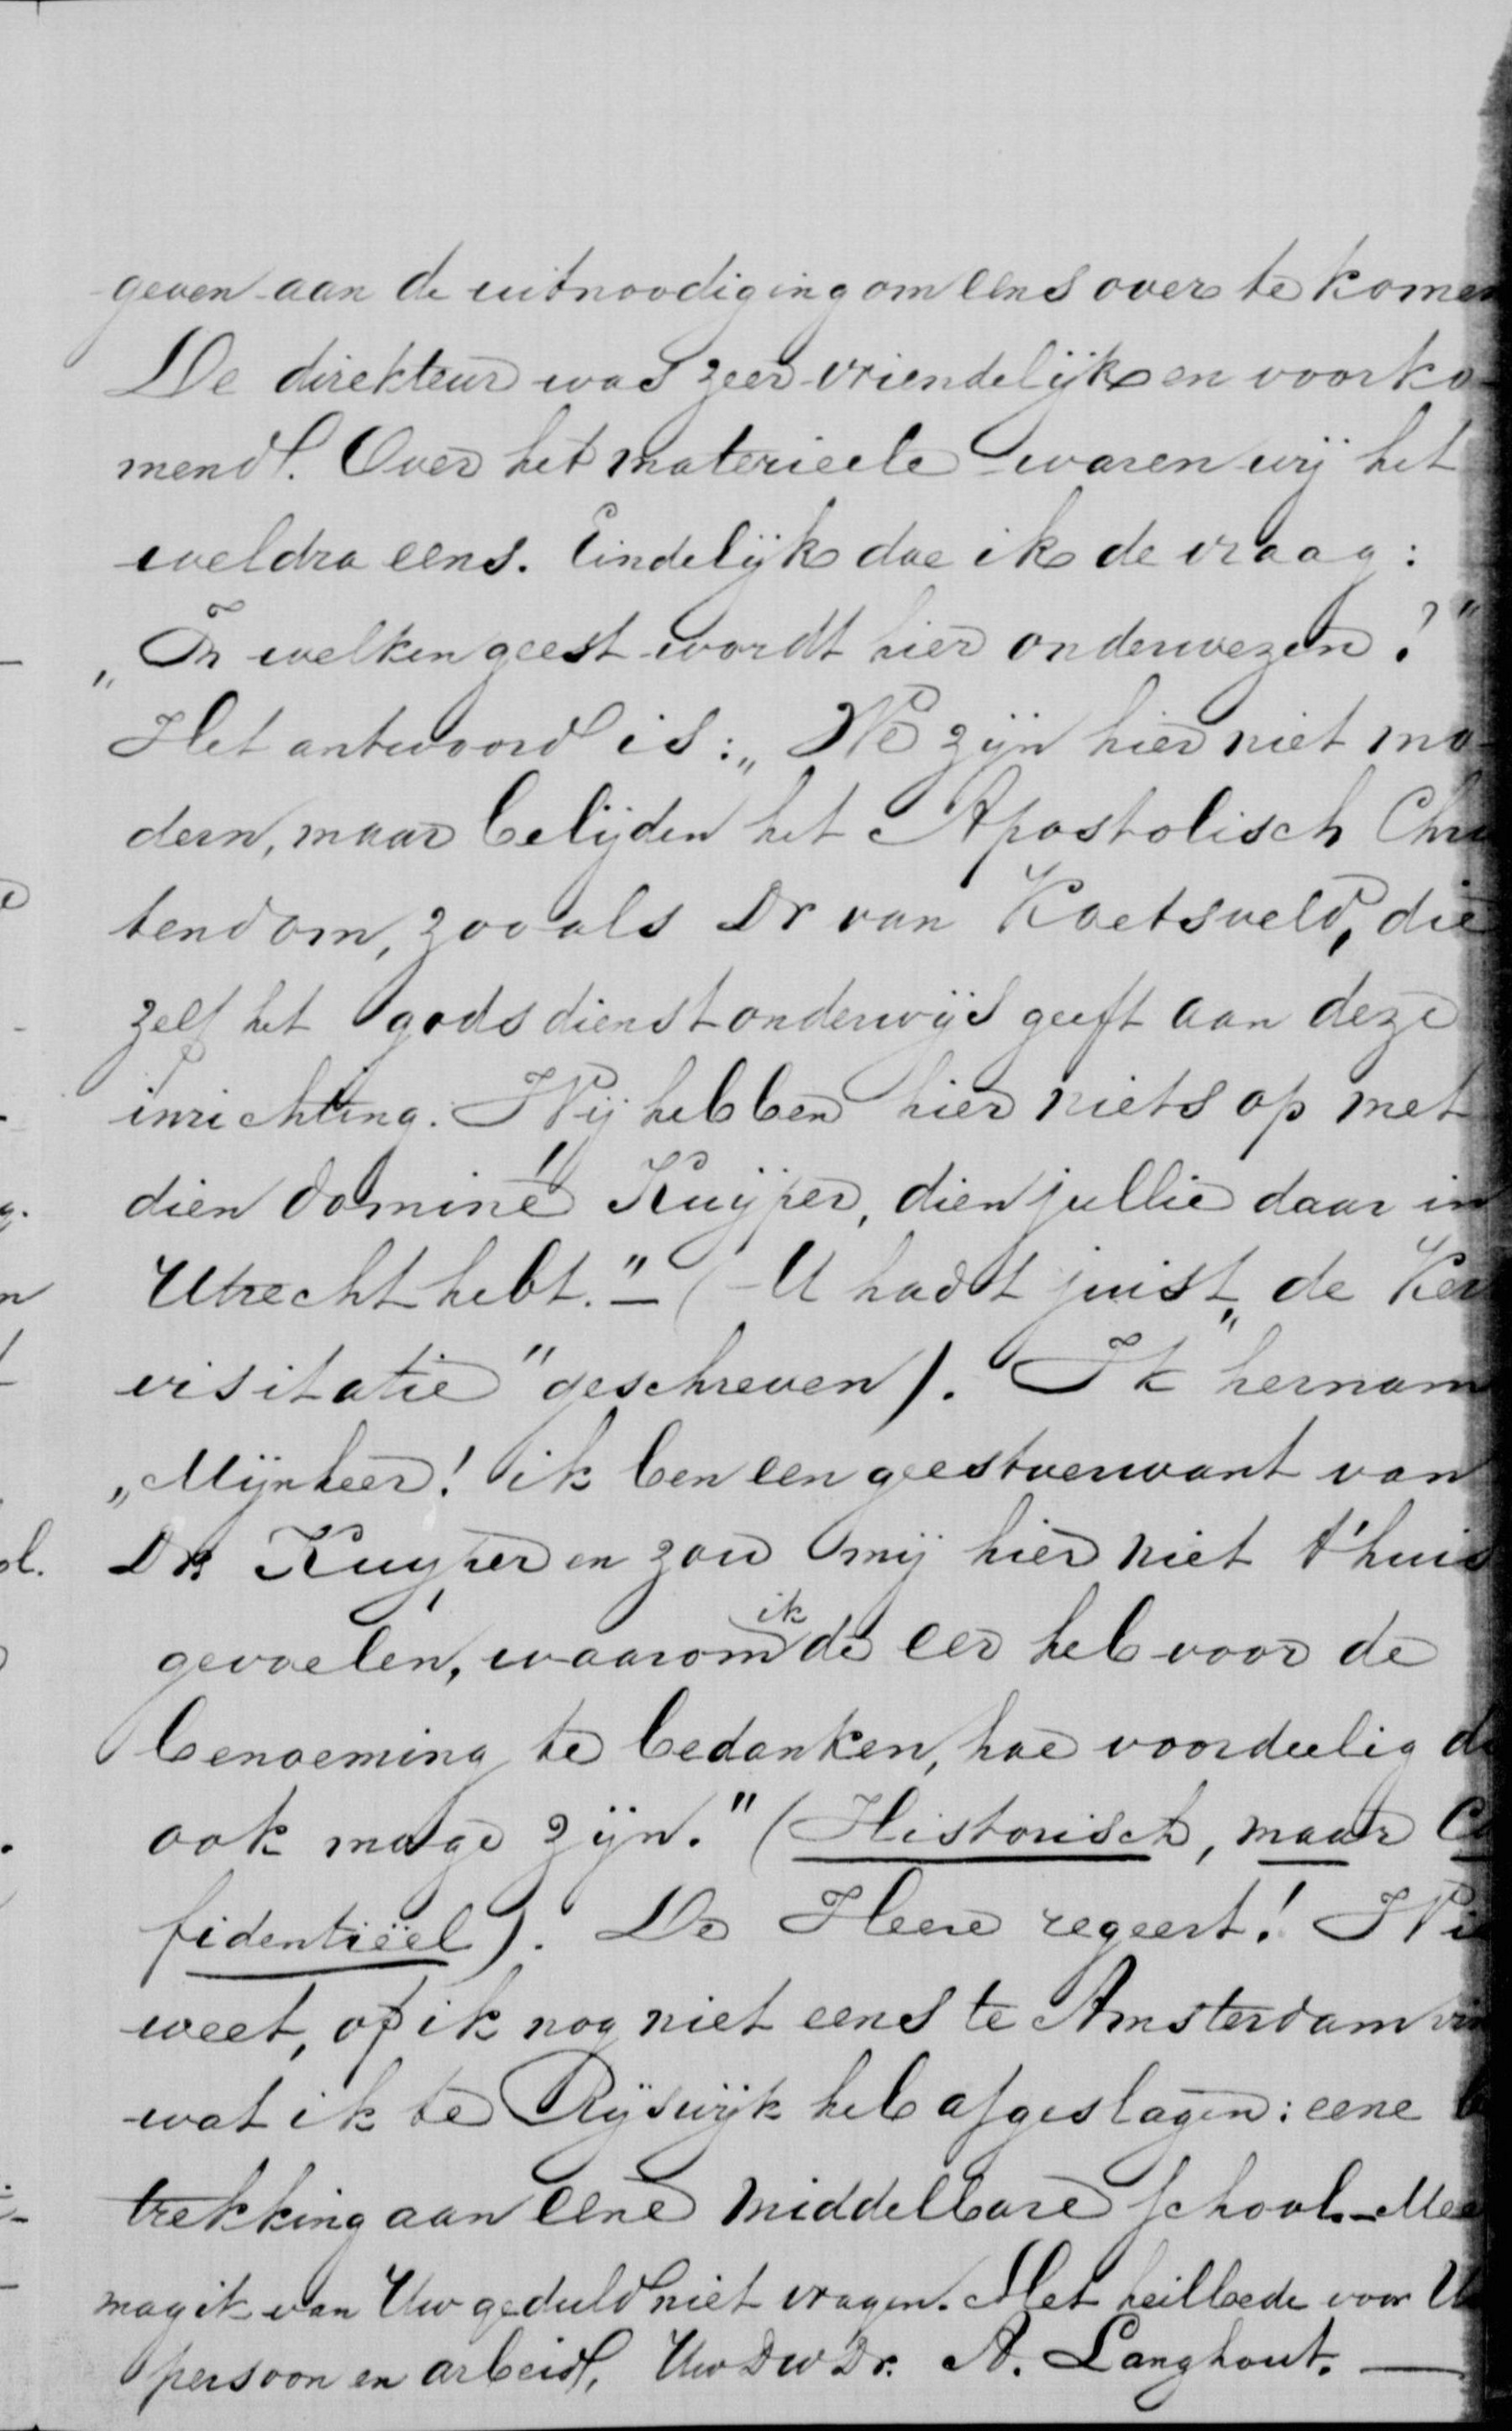 geven aan de uitnoodiging om eens over te komen
De direkteur was zeer vriendelijk en voorko-
mend. Over het materieele waren wij het
weldra eens. Eindelijk doe ik de vraag:
„In welken geest wordt hier onderwezen?"
Het antwoord is: „We zijn hier niet mo-
dern, maar belijden het Apostolisch Chris
tendom, zooals Dr van Koetsveld, die
zelf het godsdienstonderwijs geeft aan deze
inrichting. Wij hebben hier niets op met
dien dominé Kuijper, dien jullie daar in
Utrecht hebt." – (U hadt juist „de Ker
visitatie" geschreven). Ik hernam
„Mijnheer! ik ben een geestverwant van
Dr. Kuyper en zou mij hier niet t'huis
gevoelen, waarom ik de eer heb voor de
benoeming te bedanken, hoe voordeelig de
ook moge zijn." (Historisch, maar Co
fidentiëel). De Heere regeert! Wie
weet, of ik nog niet eens te Amsterdam vin
wat ik te Rijswijk heb afgeslagen: eene b
trekking aan eene middelbare school. – Mee
mag ik van Uw geduld niet vragen. Met heilbede voor U
persoon en arbeid, Uw Dw Dr. A. Langhout. —